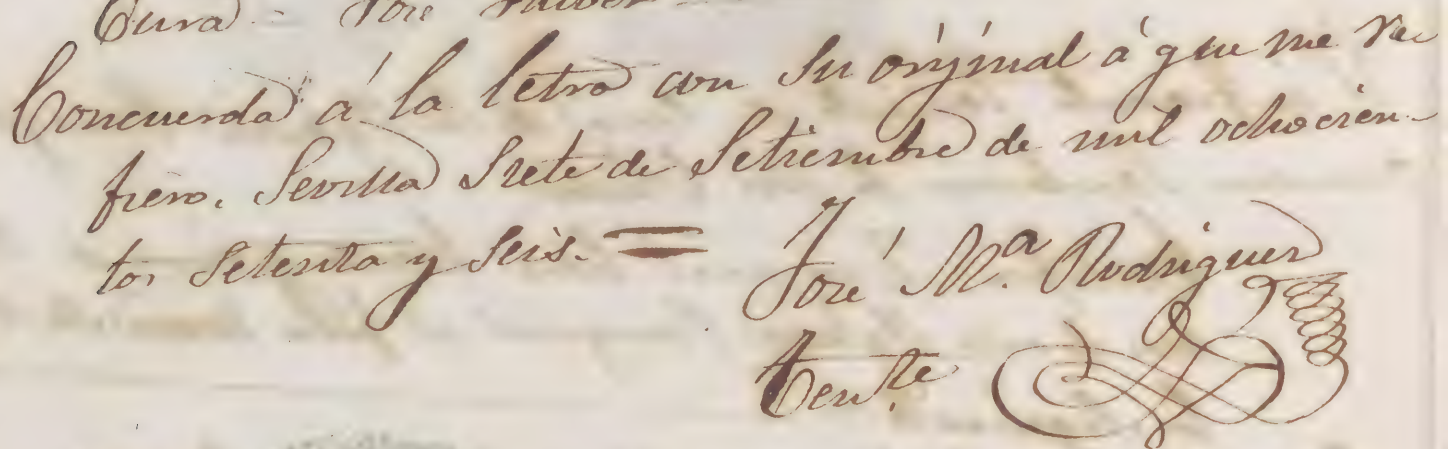 Cura = José
Concuerda á la letra con su orijinal á que me re
fiero. Sevilla Siete de Setiembre de mil ochocien-
tos setenta y seis. =
José Mª Rodriguez
Tente